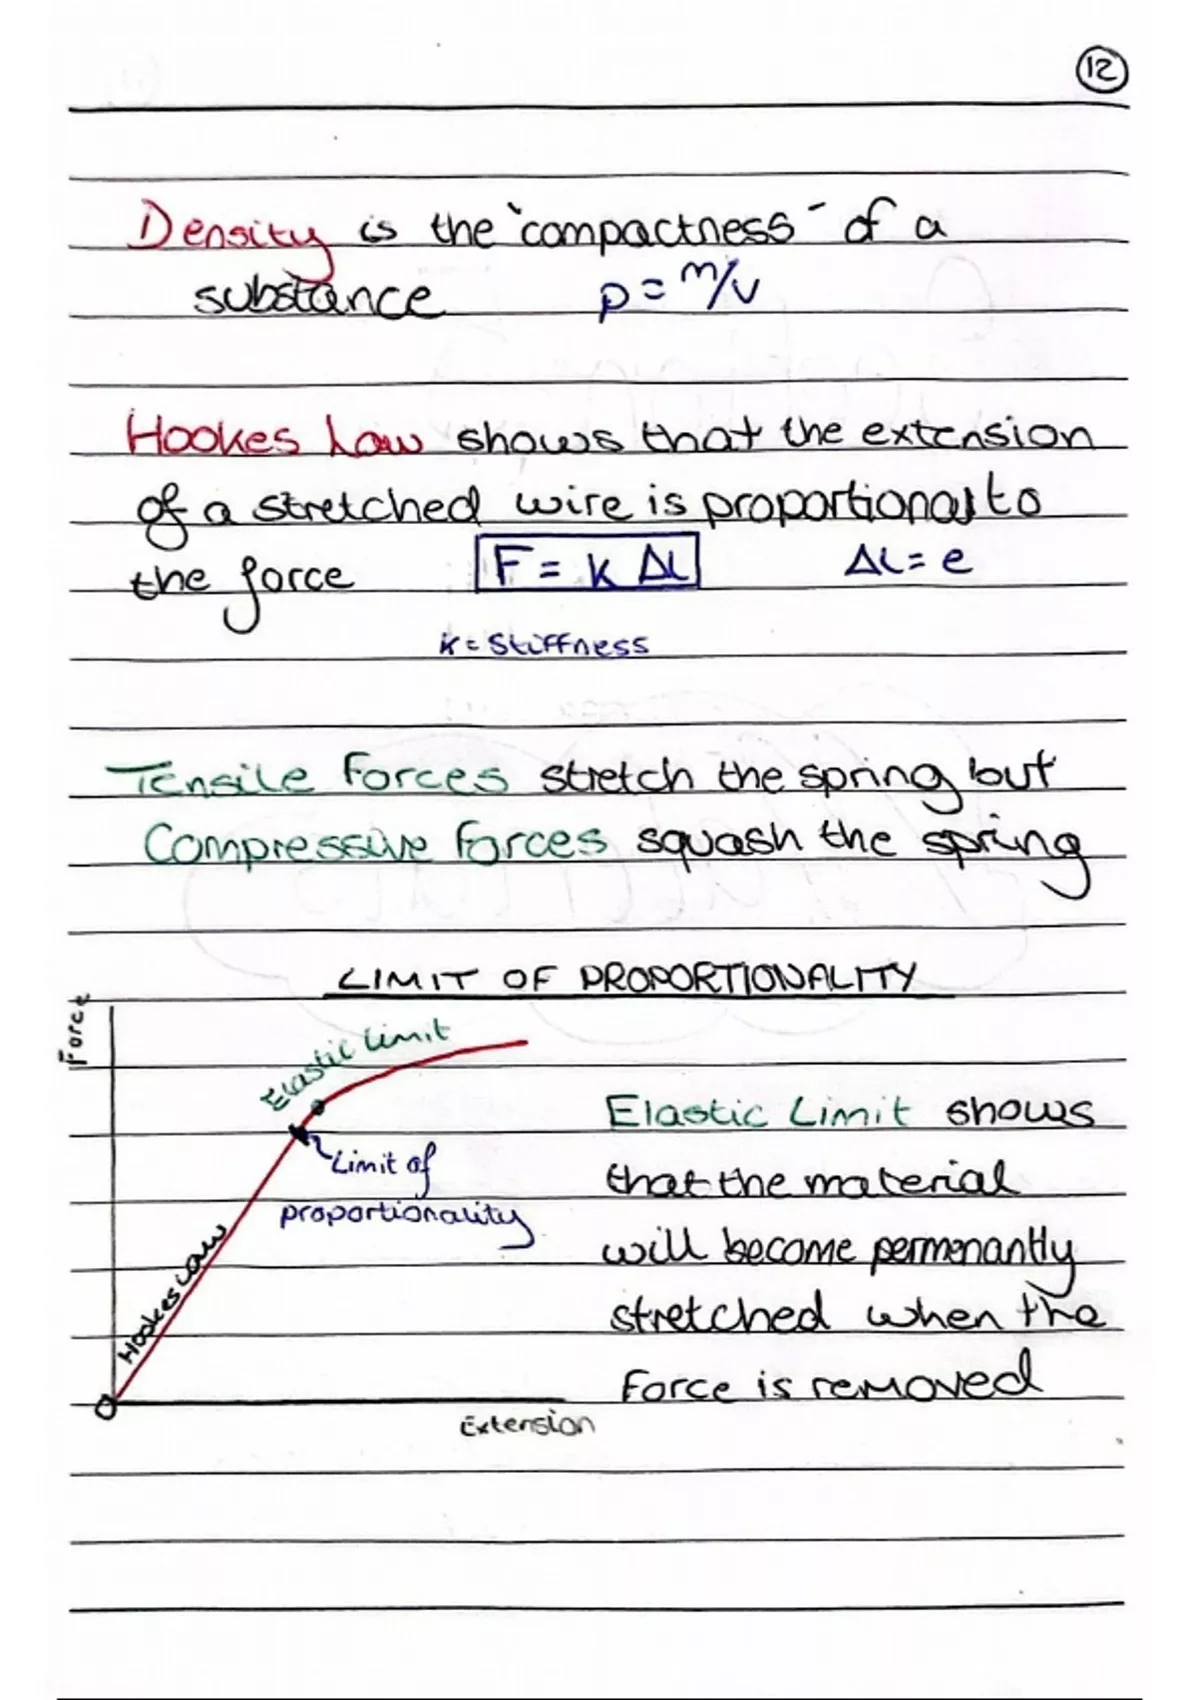 12
Density is the 'compactness' of a
substance p = m/v
Hookes Law shows that the extension
of a stretched wire is proportional to
the force F = k ΔL ΔL = e
k = stiffness
Tensile forces stretch the spring but
Compressive forces squash the spring
LIMIT OF PROPORTIONALITY
Force
Elastic limit
Limit of
proportionality
Hookes Law
Extension
Elastic Limit shows
that the material
will become permenantly
stretched when the
force is removed